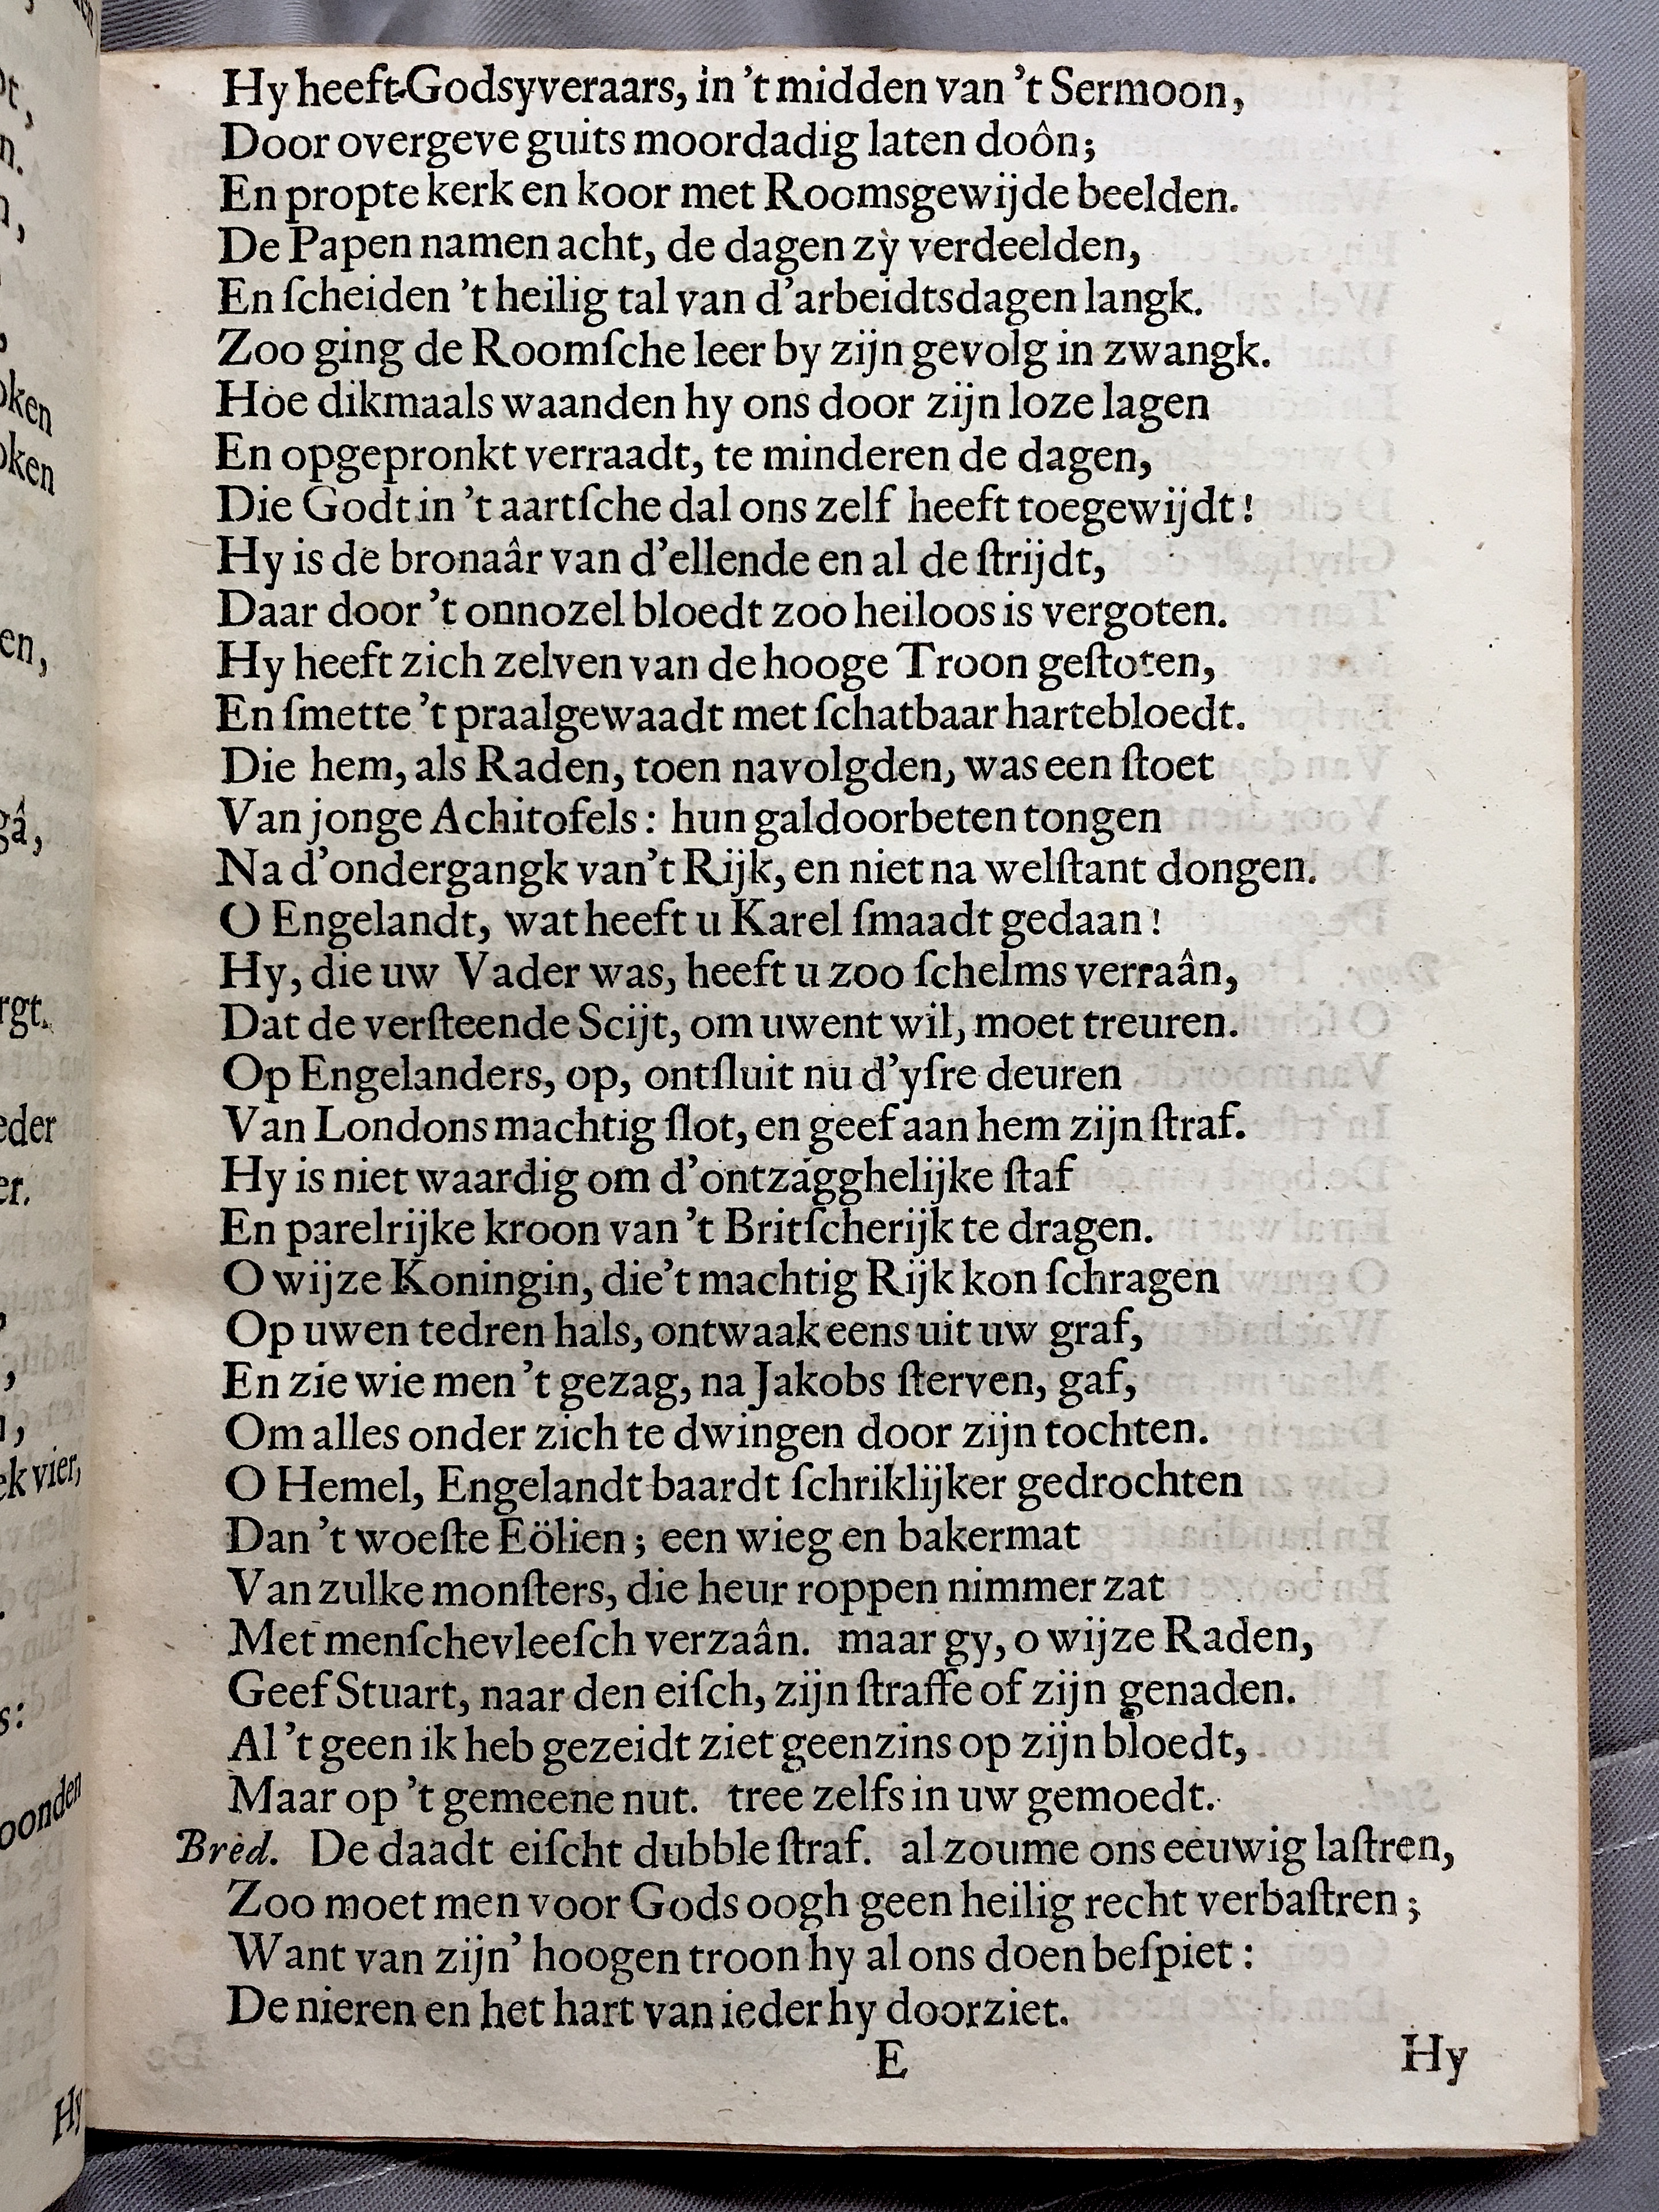 Hy heeft Godsyveraars, in 't midden van 't Sermoon,
Door overgeve guits moordadig laten doôn;
En propte kerk en koor met Roomsgewijde beelden.
De Papen namen acht, de dagen zy verdeelden,
En ſcheiden 't heilig tal van d'arbeidtsdagen langk.
Zoo ging de Roomſche leer by zijn gevolg in zwangk.
Hoe dikmaals waanden hy ons door zijn loze lagen
En opgepronkt verraadt, te minderen de dagen,
Die Godt in 't aartſche dal ons zelf heeft toegewijdt!
Hy is de bronaâr van d'ellende en al de ſtrijdt,
Daar door 't onnozel bloedt zoo heiloos is vergoten.
Hy heeft zich zelven van de hooge Troon geſtoten,
En ſmette 't praalgewaadt met ſchatbaar hartebloedt.
Die hem, als Raden, toen navolgden, was een ſtoet
Van jonge Achitofels: hun galdoorbeten tongen
Na d'ondergangk van 't Rijk, en niet na welſtant dongen.
O Engelandt, wat heeft u Karel ſmaadt gedaan!
Hy, die uw Vader was, heeft u zoo ſchelms verraân,
Dat de verſteende Scijt, om uwent wil, moet treuren.
Op Engelanders, op, ontſluit nu d'yſre deuren
Van Londons machtig ſlot, en geef aan hem zijn ſtraf.
Hy is niet waardig om d'ontzagghelijke ſtaf
En parelrijke kroon van 't Britſcherijk te dragen.
O wijze Koningin, die 't machtig Rijk kon ſchragen
Op uwen tedren hals, ontwaak eens uit uw graf,
En zie wie men 't gezag, na Jakobs ſterven, gaf,
Om alles onder zich te dwingen door zijn tochten.
O Hemel, Engelandt baardt ſchriklijker gedrochten
Dan 't woeſte Eölien; een wieg en bakermat
Van zulke monſters, die heur roppen nimmer zat
Met menſchevleeſch verzaân. maar gy, o wijze Raden,
Geef Stuart, naar den eiſch, zijn ſtraffe of zijn genaden.
Al 't geen ik heb gezeidt ziet geenzins op zijn bloedt,
Maar op 't gemeene nut. tree zelfs in uw gemoedt.
Bred. De daadt eiſcht dubble ſtraf. al zoume ons eeuwig laſtren,
Zoo moet men voor Gods oogh geen heilig recht verbaſtren;
Want van zijn' hoogen troon hy al ons doen beſpiet:
De nieren en het hart van ieder hy doorziet.
E Hy